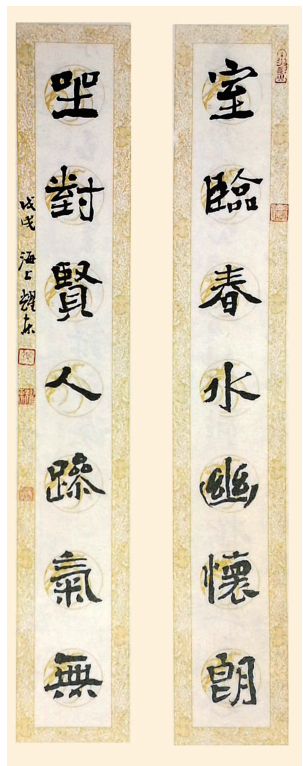 室臨春水幽懷朗
坐對賢人躁氣無
戊戌 海上耀東